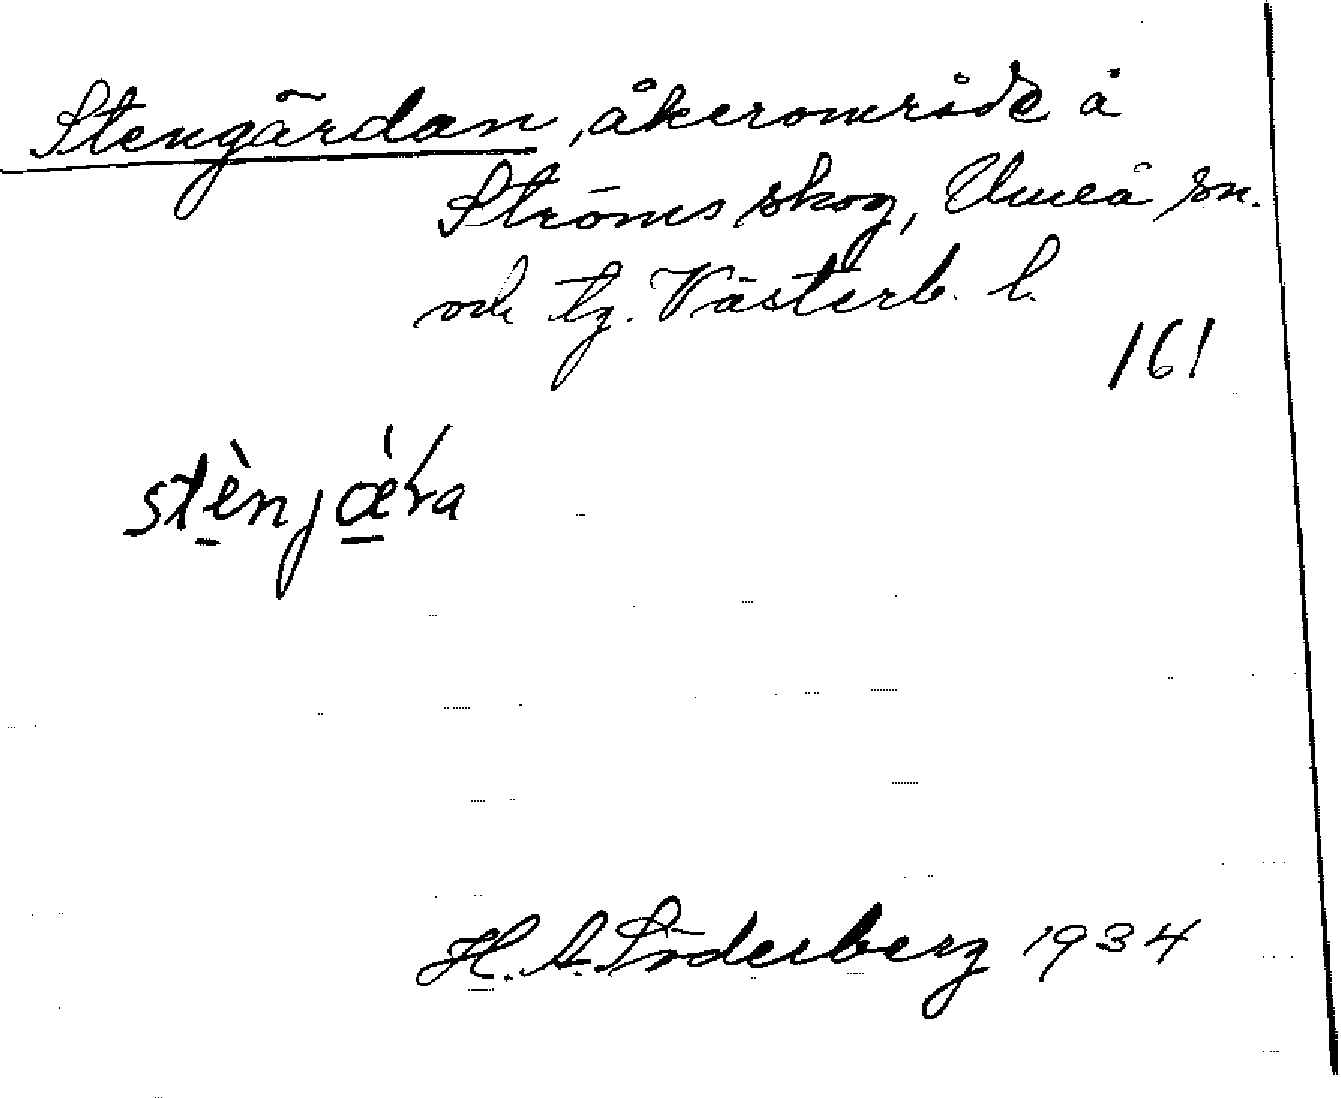 Stengärdan, åkerområde å
Ströms skog, Umeå sn.
och tg. Västerb. l.
161
stènjæ̀ra
H. A. Söderberg 1934